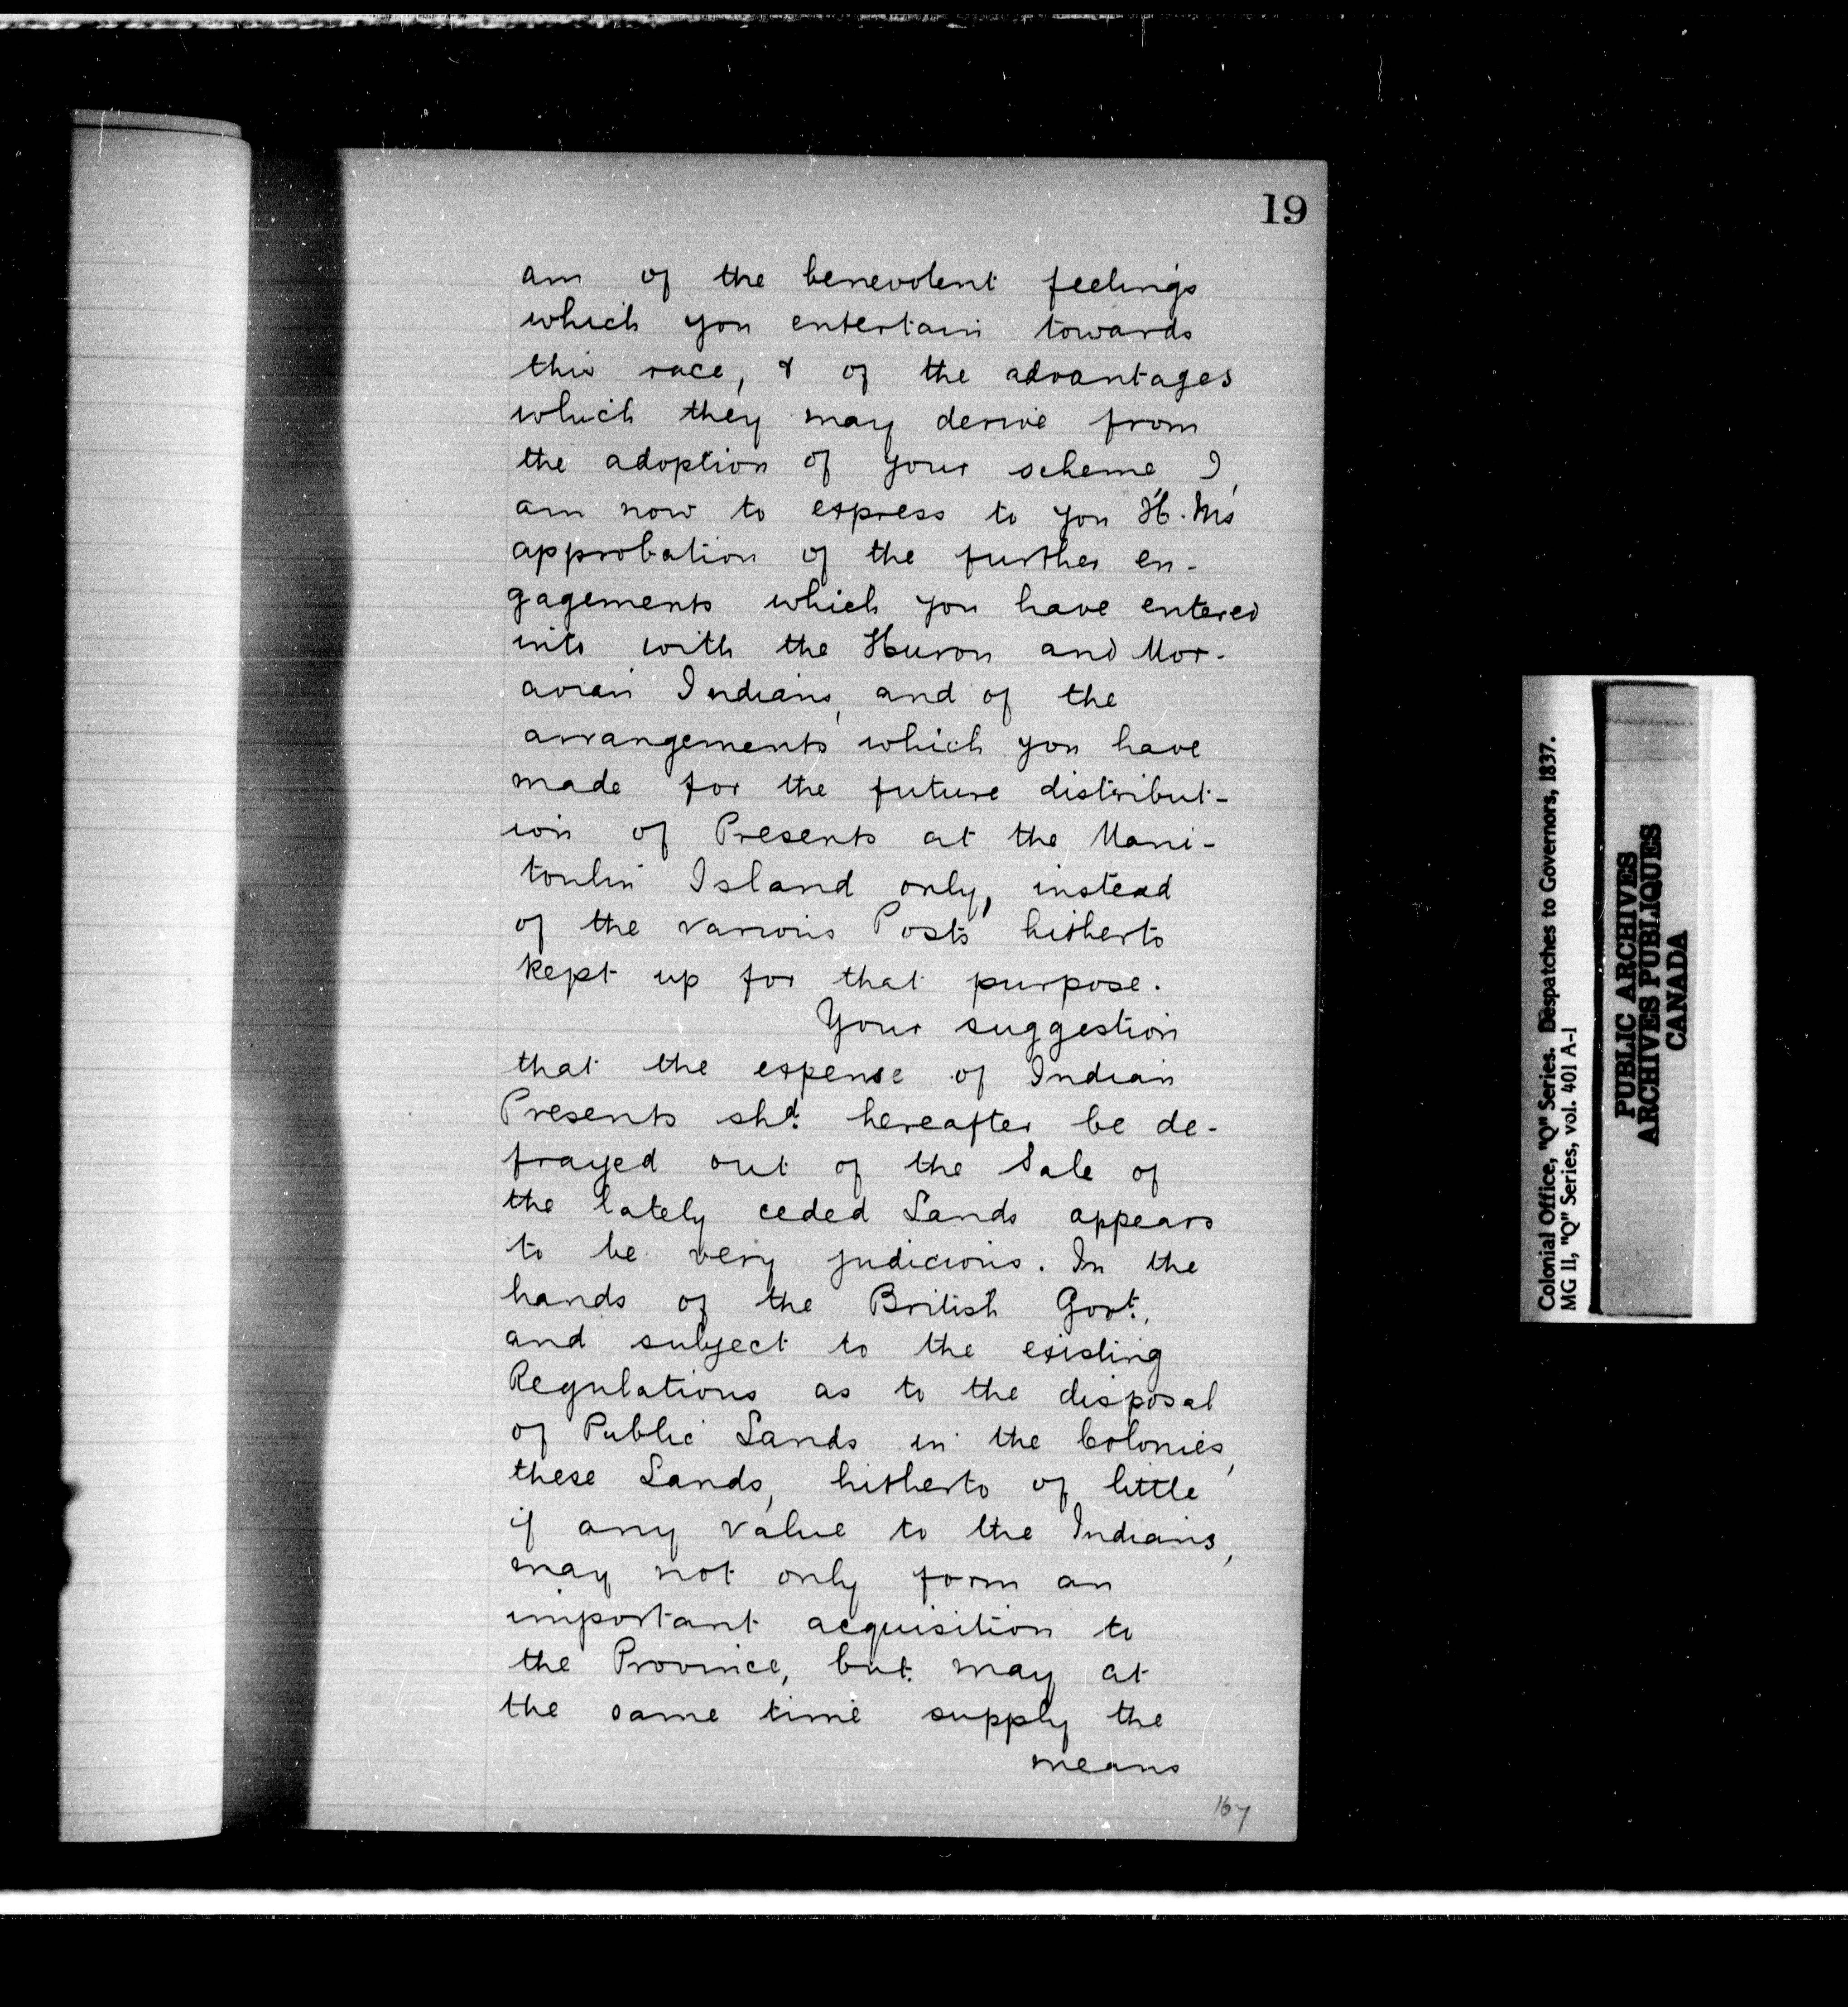 19
am of the benevolent feelings
which you entertain towards
this race, & of the advantages
which they may derive from
the adoption of your scheme, I
am now to express to you H.M's
approbation of the further en-
gagements which you have entered
into with the Huron and Mor-
avian Indians, and of the
arrangements which you have
made for the future distribut-
ion of Presents at the Mani-
toulin Island only, instead
of the various Posts hitherto
kept up for that purpose.
Your suggestion
that the expense of Indian
Presents shd. hereafter be de-
frayed out of the Sale of
the lately ceded Lands appears
to be very judicious. In the
hands of the British Govt.,
and subject to the existing
Regulations as to the disposal
of Public Lands in the Colonies,
these Lands, hitherto of little
if any value to the Indians,
may not only form an
important acquisition to
the Province, but may at
the same time supply the
means
167
Colonial Office, "Q" Series. Despatches to Governors, 1837.
MG 11, "Q" Series, vol. 401 A-1
PUBLIC ARCHIVES
ARCHIVES PUBLIQUES
CANADA